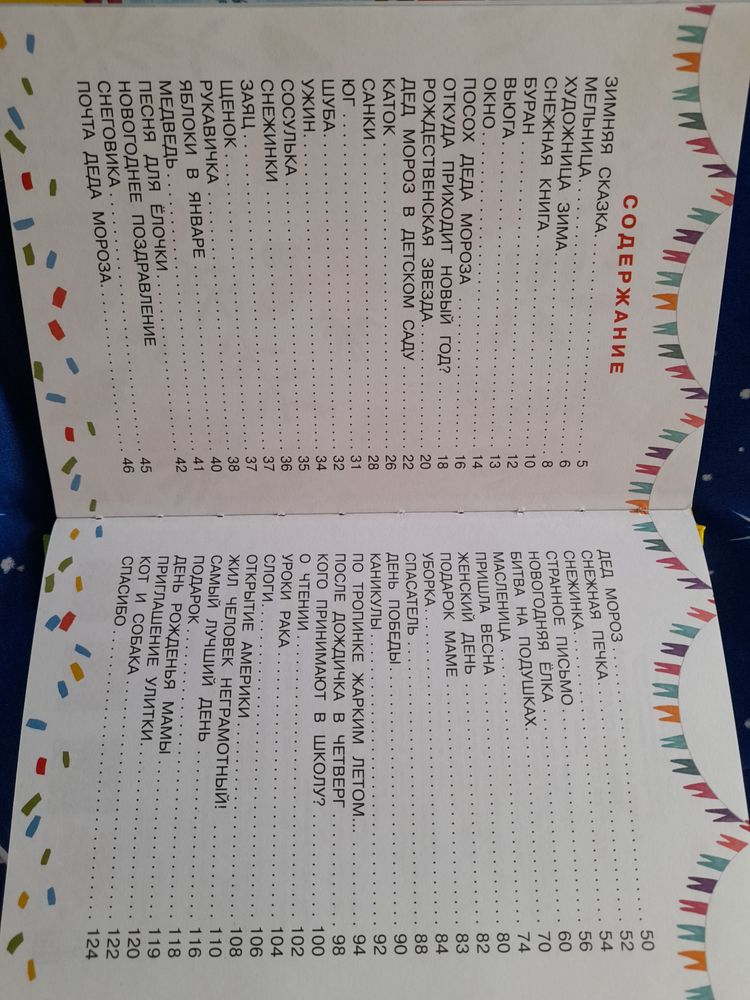 СОДЕРЖАНИЕ
ЗИМНЯЯ СКАЗКА 5
МЕЛЬНИЦА 6
ХУДОЖНИЦА ЗИМА 8
СНЕЖНАЯ КНИГА 10
БУРАН 12
ВЬЮГА 13
ОКНО 14
ПОСОХ ДЕДА МОРОЗА 16
ОТКУДА ПРИХОДИТ НОВЫЙ ГОД? 18
РОЖДЕСТВЕНСКАЯ ЗВЕЗДА 20
ДЕД МОРОЗ В ДЕТСКОМ САДУ 22
КАТОК 26
САНКИ 28
ЮГ 31
ШУБА 32
УЖИН 34
СОСУЛЬКА 35
СНЕЖИНКИ 36
ЗАЯЦ 37
ЩЕНОК 37
РУКАВИЧКА 38
ЯБЛОКИ В ЯНВАРЕ 40
МЕДВЕДЬ 41
ПЕСНЯ ДЛЯ ЁЛОЧКИ 42
НОВОГОДНЕЕ ПОЗДРАВЛЕНИЕ
СНЕГОВИКА 45
ПОЧТА ДЕДА МОРОЗА 46
ДЕД МОРОЗ 50
СНЕЖНАЯ ПЕЧКА 52
СНЕЖИНКА 54
СТРАННОЕ ПИСЬМО 56
НОВОГОДНЯЯ ЁЛКА 60
БИТВА НА ПОДУШКАХ 70
МАСЛЕНИЦА 74
ПРИШЛА ВЕСНА 80
ЖЕНСКИЙ ДЕНЬ 82
ПОДАРОК МАМЕ 83
УБОРКА 84
СПАСАТЕЛЬ 88
ДЕНЬ ПОБЕДЫ 90
КАНИКУЛЫ 92
ПО ТРОПИНКЕ ЖАРКИМ ЛЕТОМ 94
ПОСЛЕ ДОЖДИЧКА В ЧЕТВЕРГ 98
КОГО ПРИНИМАЮТ В ШКОЛУ? 100
О ЧТЕНИИ 102
УРОКИ РАКА 104
СЛОГИ 106
ОТКРЫТИЕ АМЕРИКИ 108
ЖИЛ ЧЕЛОВЕК НЕГРАМОТНЫЙ! 110
САМЫЙ ЛУЧШИЙ ДЕНЬ 116
ПОДАРОК 118
ДЕНЬ РОЖДЕНЬЯ МАМЫ 119
ПРИГЛАШЕНИЕ УЛИТКИ 120
КОТ И СОБАКА 122
СПАСИБО 124